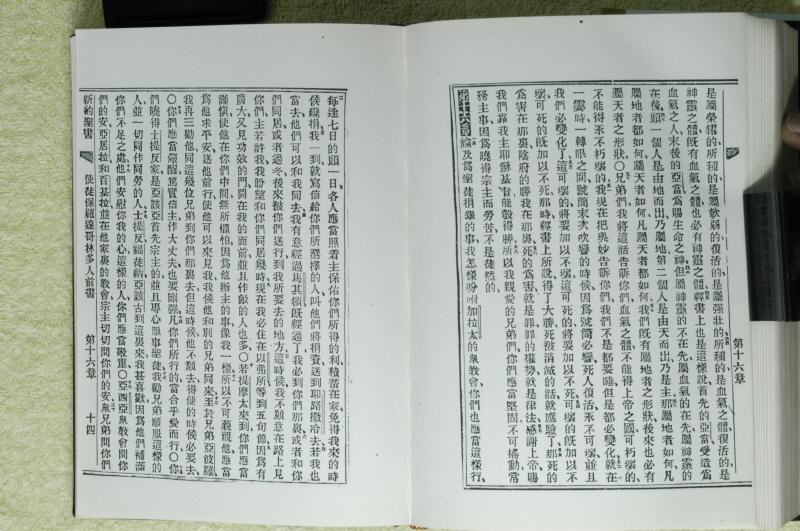 第十六章
是屬榮耀的所種的是軟弱的復活的是屬強壯的所種的是血氣之體復活的是
神靈之體既有血氣之體也必有神靈之體經書上也是這樣說首先的亞當受造爲
血氣之人末後的亞當爲賜生命之神但屬神靈的不在先屬血氣的在先屬神靈的
在後頭一個人是由地而出乃屬地第二個人是由天而出乃是主那屬地者如何凡
屬地者都如何屬天者如何凡屬天者都如何我們既有屬地者之形狀後來也必有
屬天者之形狀〇兄弟們我將這話告訴你們血氣之體不能得上帝之國可朽壞的
不能得永不朽壞的我現在把奧妙告訴你們我們不是都要睡但是都必變化就在
一霎時一轉眼之間號筒末次吹響的時候因爲號筒必響死人復活永不可壞並且
我們必變化了這可壞的將要加以不壞這可死的將要加以不死可壞的既加以不
壞可死的既加以不死那時經書上所說得了大勝死被消滅的話就應驗了那死的
爲害在那裏陰府的勝我在那裏死的爲害就是罪罪的權勢就是律法感謝上帝賜
我們靠我主耶穌基督能彀得勝所以我親愛的兄弟們你們應當堅固不可搖動常
務主事因爲曉得宗主而勞苦不是徒然的
第十六章論及爲聖徒捐錢的事我怎樣吩咐加拉太的衆教會你們也應當這樣行
每逢七日的頭一日各人應當照着主保佑你們所得的利積蓄在家免得我來的時
候纔捐我一到就寫信給你們所選擇的人叫他們將捐資送到耶路撒冷去若我也
當去他們可以和我同去我有意經過馬其頓既經過了我必到你們那裏或者和你
們同居或者過冬後來被你們送行到我所要去的地方這時候我不願意在路上見
你們主若許我我盼望和你們同居幾時現在我必住在以弗所等到五旬節因爲有
廣大又見功效的門開在我的面前並且作敵的人也多〇若提摩太來到你們應當
謹愼使他在你們中間無所懼怕因爲他辦主的事像我一樣所以不可藐視他應當
爲他求平安送他前行使他可以來見我我候他和別的兄弟同來至於兄弟亞波羅
我再三勸他同這幾位兄弟到你們那裏去但這時候他不願去得便的時候必要去
〇你們應當儆醒篤實信主作大丈夫也要剛強凡你們所行的當合乎愛而行〇你
們曉得士提反家是亞該亞首先宗主的並且專心服事聖徒我勸兄弟順服這樣的
人並一切同作同勞的人士提反福徒納亞該古到這裏來我甚喜歡因爲他們補滿
你們不足之處他們安慰你我的心這樣的人你們應當敬重〇亞西亞衆教會問你
們的安亞居拉和百基拉並在他家裏的教會宗主切切問你們的安衆兄弟問你們
新約聖書 使徒保羅達哥林多人前書 第十六章 十四